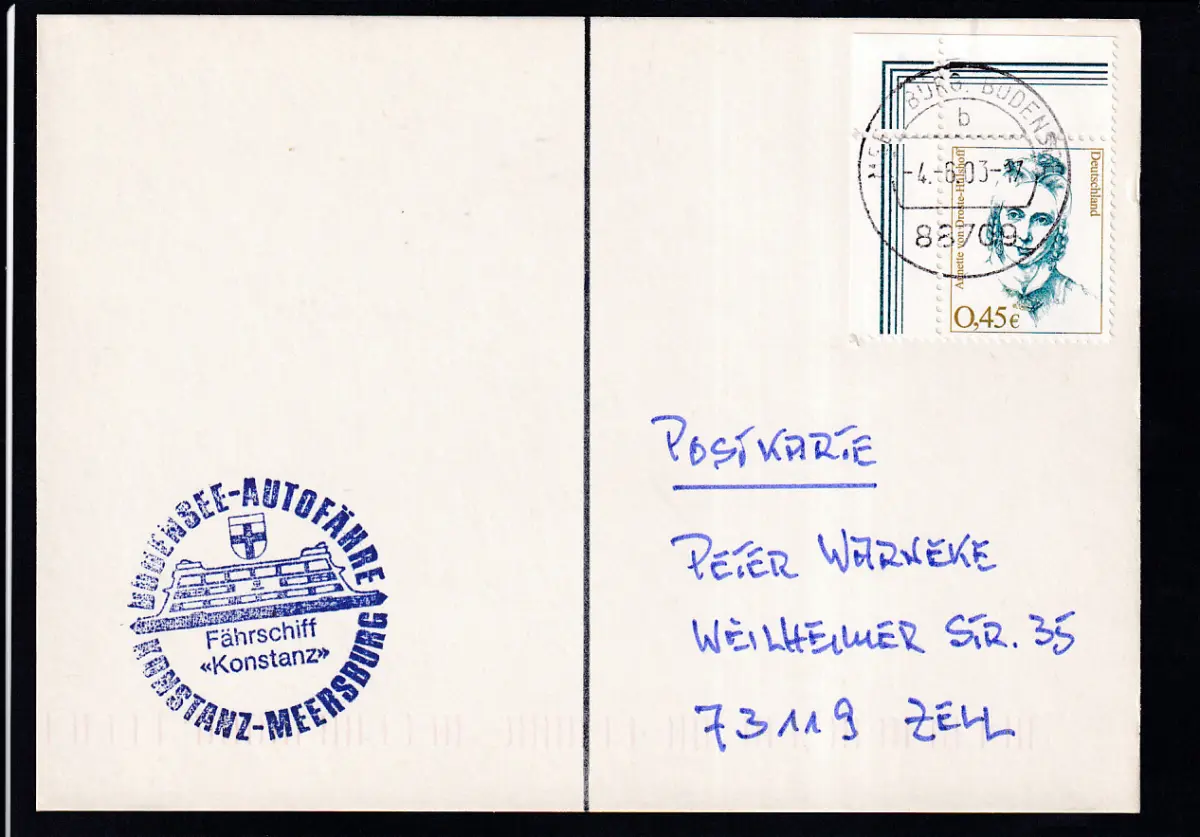 MEERSBURG, BODENSEE
b
-4.-6.03-17
88709
Deutschland
Annette von Droste-Hülshoff
0,45€
POSTKARTE
PETER WARNEKE
WEILHEIMER STR. 35
73119 ZELL
BODENSEE-AUTOFÄHRE
Fährschiff
«Konstanz»
KONSTANZ-MEERSBURG